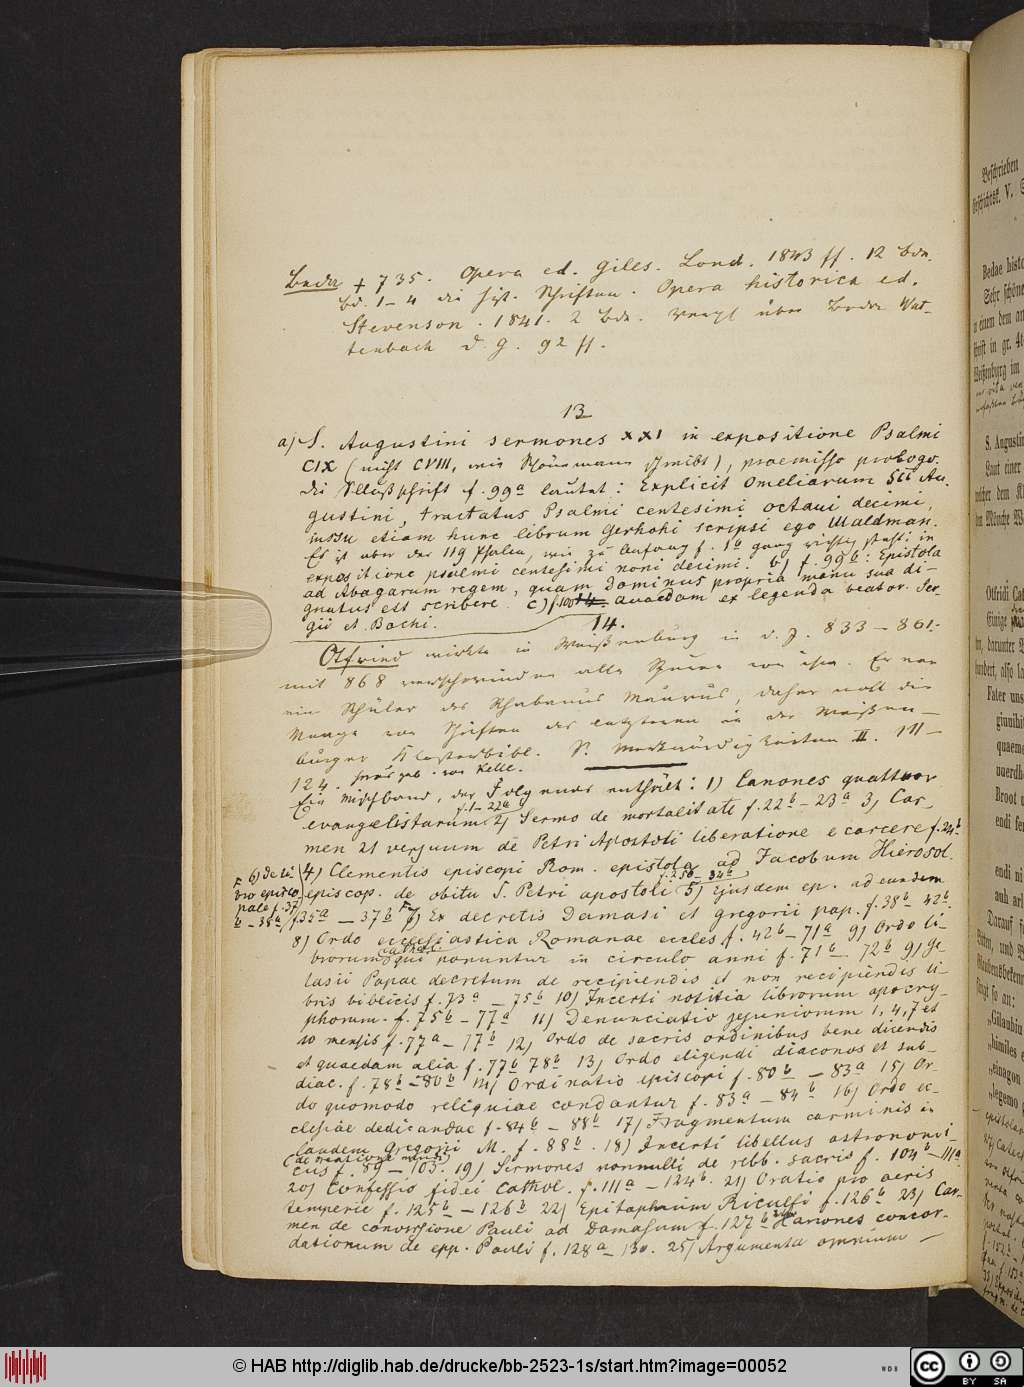 Beda † 735. Opera ed. Giles. Lond. 1843 ff. 12 Bde.
Bd. 1–4 die hist. Schriften. Opera historica ed.
Stevenson. 1841. 2 Bde. Vergl über Beda Wat-
tenbach D. G. 92 ff.
13
a) S. Augustini sermones XXI in expositione Psalmi
CIX (nicht CVIII, wie Schönemann schreibt), praemisso prologo.
Die Schlußschrift f. 99a lautet: Explicit Omeliarum Sci Au-
gustini, tractatus Psalmi centesimi octaui decimi,
iussu etiam hunc librum Gerhohi scripsi ego Waldman.
Es ist aber der 119 Psalm, wie zu Anfang f. 1a ganz richtig steht: in
expositione psalmi centesimi noni decimi. b) f. 99b: Epistola
ad Abagarum regem, quam Dominus propria manu sua di-
gnatus est scribere. c) f. 100 Quaedam ex legenda beator. Ser-
gii et Bachi.
14.
Otfried wirkte in Weißenburg in d. J. 833–861.
mit 868 verschwinden alle Spuren von ihm. Er war
ein Schüler des Rhabanus Maurus, daher wohl die
Menge von Schriften des letzteren in der Weißen-
burger Klosterbibl. S. Merkwürdigkeiten II. 111–
124. herausgeb. von Kelle.
Ein Mischband, der Folgendes enthält: 1) Canones quattuor
evangelistarum f. 1–22a 2) Sermo de mortalitate f. 22b–23a 3) Car-
men 21 versuum de Petri Apostoli liberatione e carcere f. 24b
4) Clementis episcopi Rom. epistola ad Jacobum Hierosol.
episcop. de obitu S. Petri apostoli f. 25b–34a 5) ejusdem ep. ad eundem
f. 35a – 37b F 7) Ex decretis Damasi et Gregorii pap. f. 38b 42b.
F 6) De li-
bro episco-
pale f. 37
b – 38a
8) Ordo ecclesiastica Romanae eccles f. 42b–71a 9) Ordo li-
brorum cathol. qui ponuntur in circulo anni f. 71b 72b 9) Ge-
lasii Papae decretum de recipiendis et non recipiendis li-
bris biblicis f. 73a – 75b 10) Incerti notitia librorum apocry-
phorum. f. 75b–77a 11) Denunciatio jejuniorum 1, 4, 7 et
10 mensis f. 77a–77b 12) Ordo de sacris ordinibus bene dicendis
et quaedam alia f. 77b 78b 13) Ordo eligendi diaconos et sub-
diac. f. 78b–80b 14) Ordinatio episcopi f. 80b – 83a 15) Or-
do quomodo reliquiae condantur f. 83a – 84b 16) Ordo ec-
clesiae dedicandae f. 84b – 88b 17) Fragmentum carminis in
laudem Gregorii M. f. 88b. 18) Incerti libellus astronomi-
cus f. 89–103. 19) Sermones nonnulli de rebb. sacris f. 104b–111a
20) Confessio fidei cathol. f. 111a – 124b. 21) Oratio pro aeris
temperie f. 125b – 126b 22) Epitaphium Riculfi f. 126b 23) Car-
men de conversione Pauli ad Damasum f. 127b 24) Canones concor-
dationum de epp. Pauli f. 128a–130. 25) Argumenta omnium –
© HAB http://diglib.hab.de/drucke/bb-2523-1s/start.htm?image=00052
WDB
cc BY SA